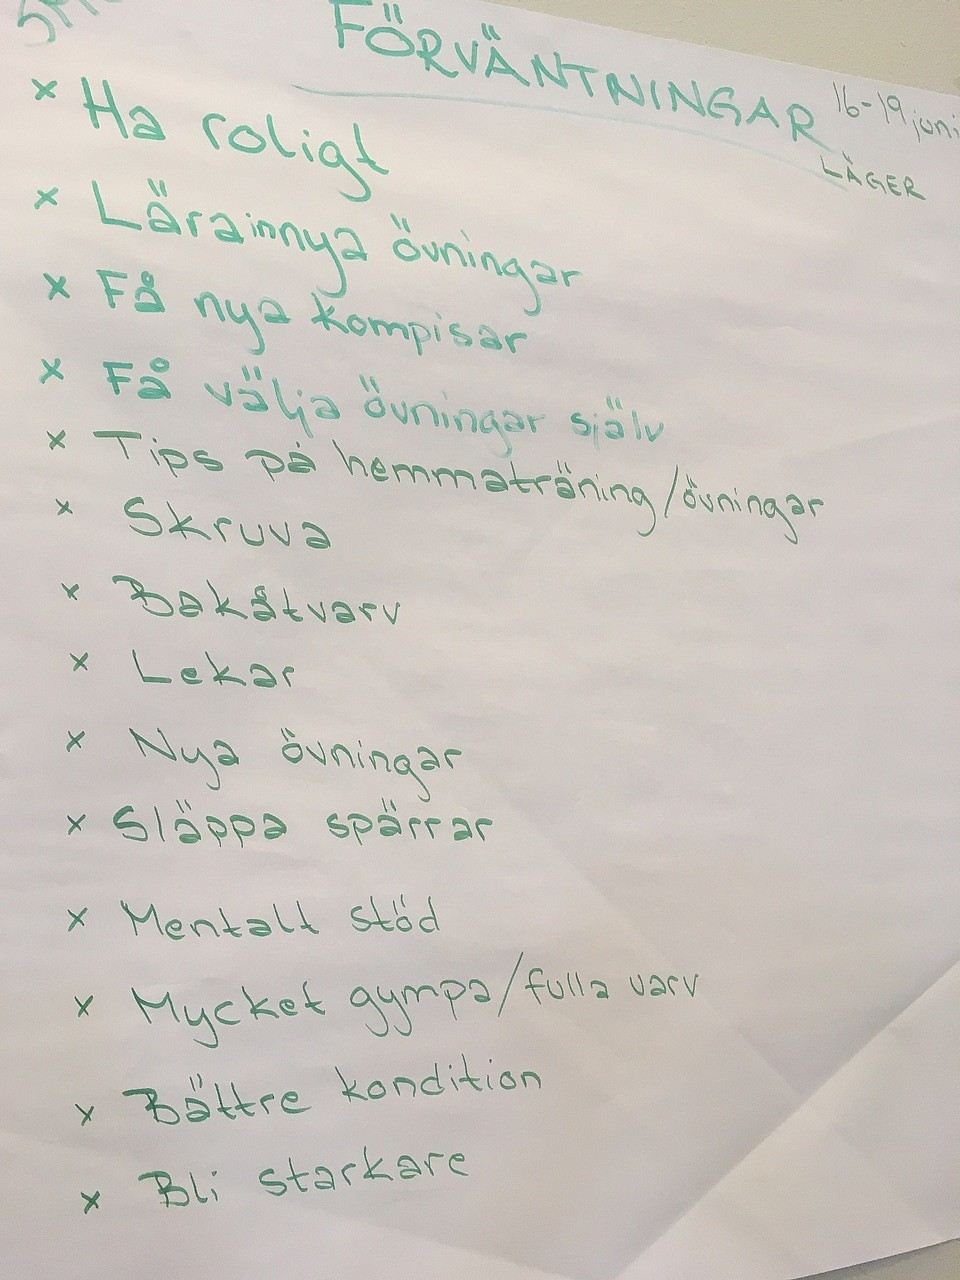 FÖRVÄNTNINGAR
16-19 juni
LÄGER
x Ha roligt
x Lära in nya övningar
x Få nya kompisar
x Få välja övningar själv
x Tips på hemmaträning/övningar
x Skruva
x Bakåtvarv
x Lekar
x Nya övningar
x Släppa spärrar
x Mentalt stöd
x Mycket gympa/fulla varv
x Bättre kondition
x Bli starkare